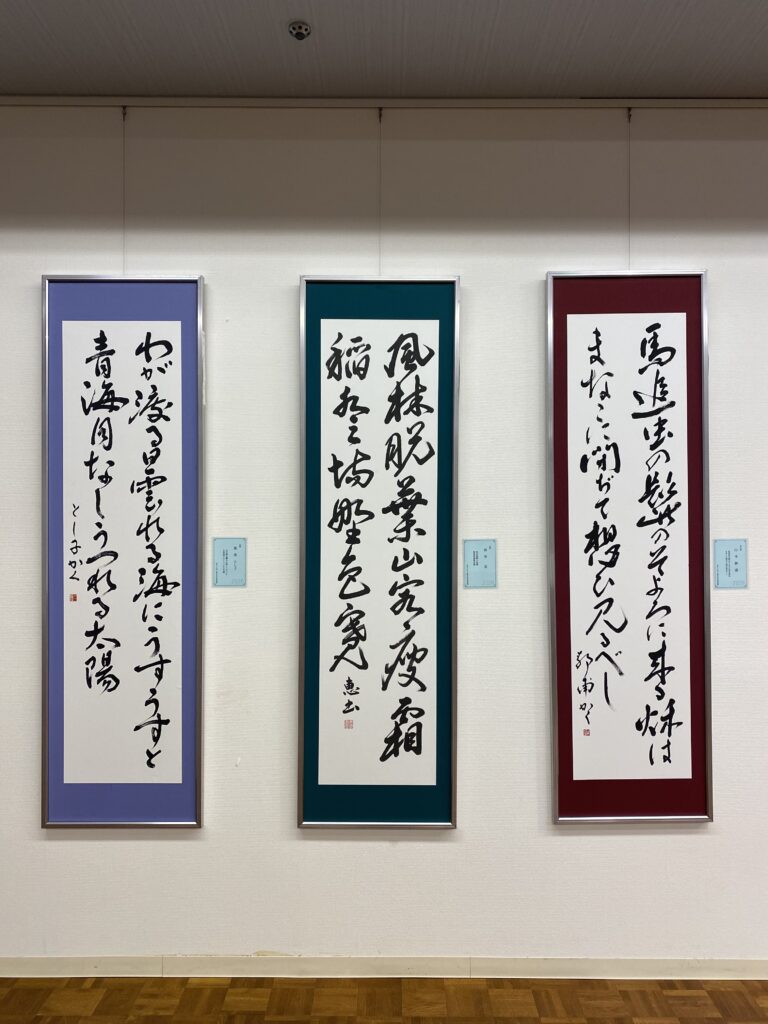 馬追虫の髭のそよろに来る秋は
まなこを閉ぢて想ひ見るべし
風林脱葉山容瘦霜
稲登場野色寛
恵書
わが渡る曇れる海にうすうすと
青海月なしうつれる太陽
とし子かく